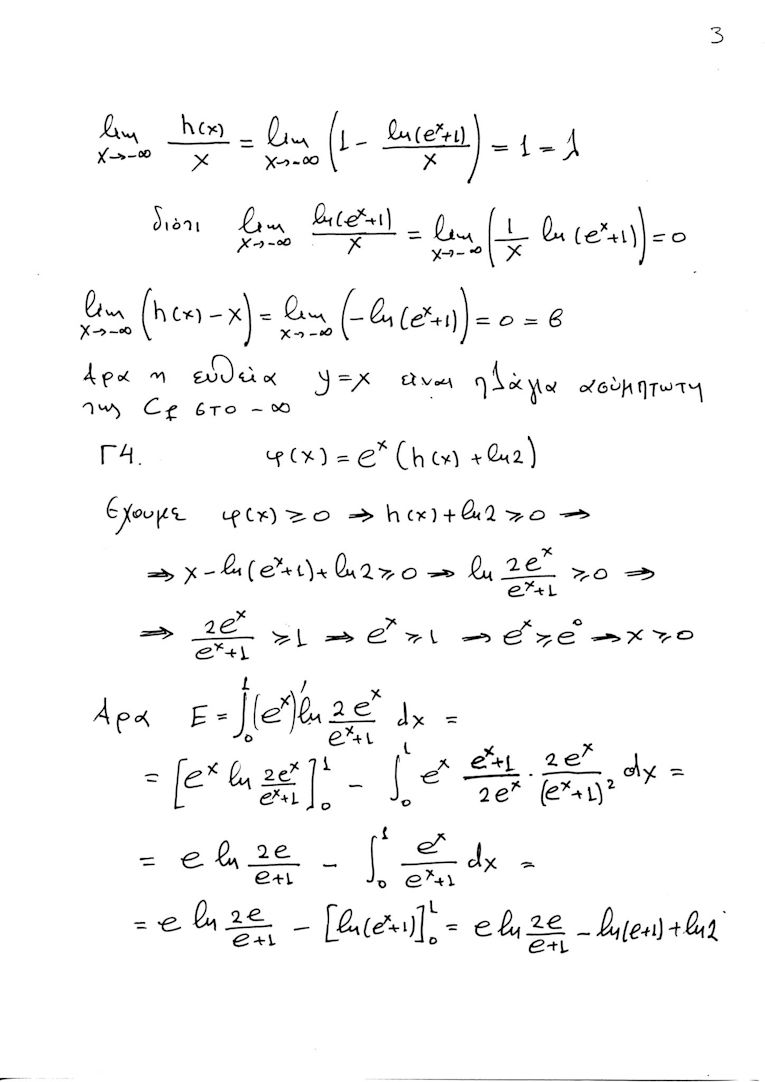 3
lim_{x→-∞} h(x)/x = lim_{x→-∞} (1 - ln(e^x+1)/x) = 1 = λ
διότι lim_{x→-∞} ln(e^x+1)/x = lim_{x→-∞} (1/x ln(e^x+1)) = 0
lim_{x→-∞} (h(x) - x) = lim_{x→-∞} (-ln(e^x+1)) = 0 = β
Άρα η ευθεία y=x είναι πλάγια ασύμπτωτη
της C_f στο -∞
Γ4. φ(x) = e^x (h(x) + ln2)
Έχουμε φ(x) ≥ 0 ⇒ h(x) + ln2 ≥ 0 ⇒
⇒ x - ln(e^x+1) + ln2 ≥ 0 ⇒ ln 2e^x/(e^x+1) ≥ 0 ⇒
⇒ 2e^x/(e^x+1) ≥ 1 ⇒ e^x ≥ 1 ⇒ e^x ≥ e^0 ⇒ x ≥ 0
Άρα E = ∫_0^1 (e^x)' ln 2e^x/(e^x+1) dx =
= [e^x ln 2e^x/(e^x+1)]_0^1 - ∫_0^1 e^x (e^x+1)/2e^x · 2e^x/(e^x+1)^2 dx =
= e ln 2e/(e+1) - ∫_0^1 e^x/(e^x+1) dx =
= e ln 2e/(e+1) - [ln(e^x+1)]_0^1 = e ln 2e/(e+1) - ln(e+1) + ln2